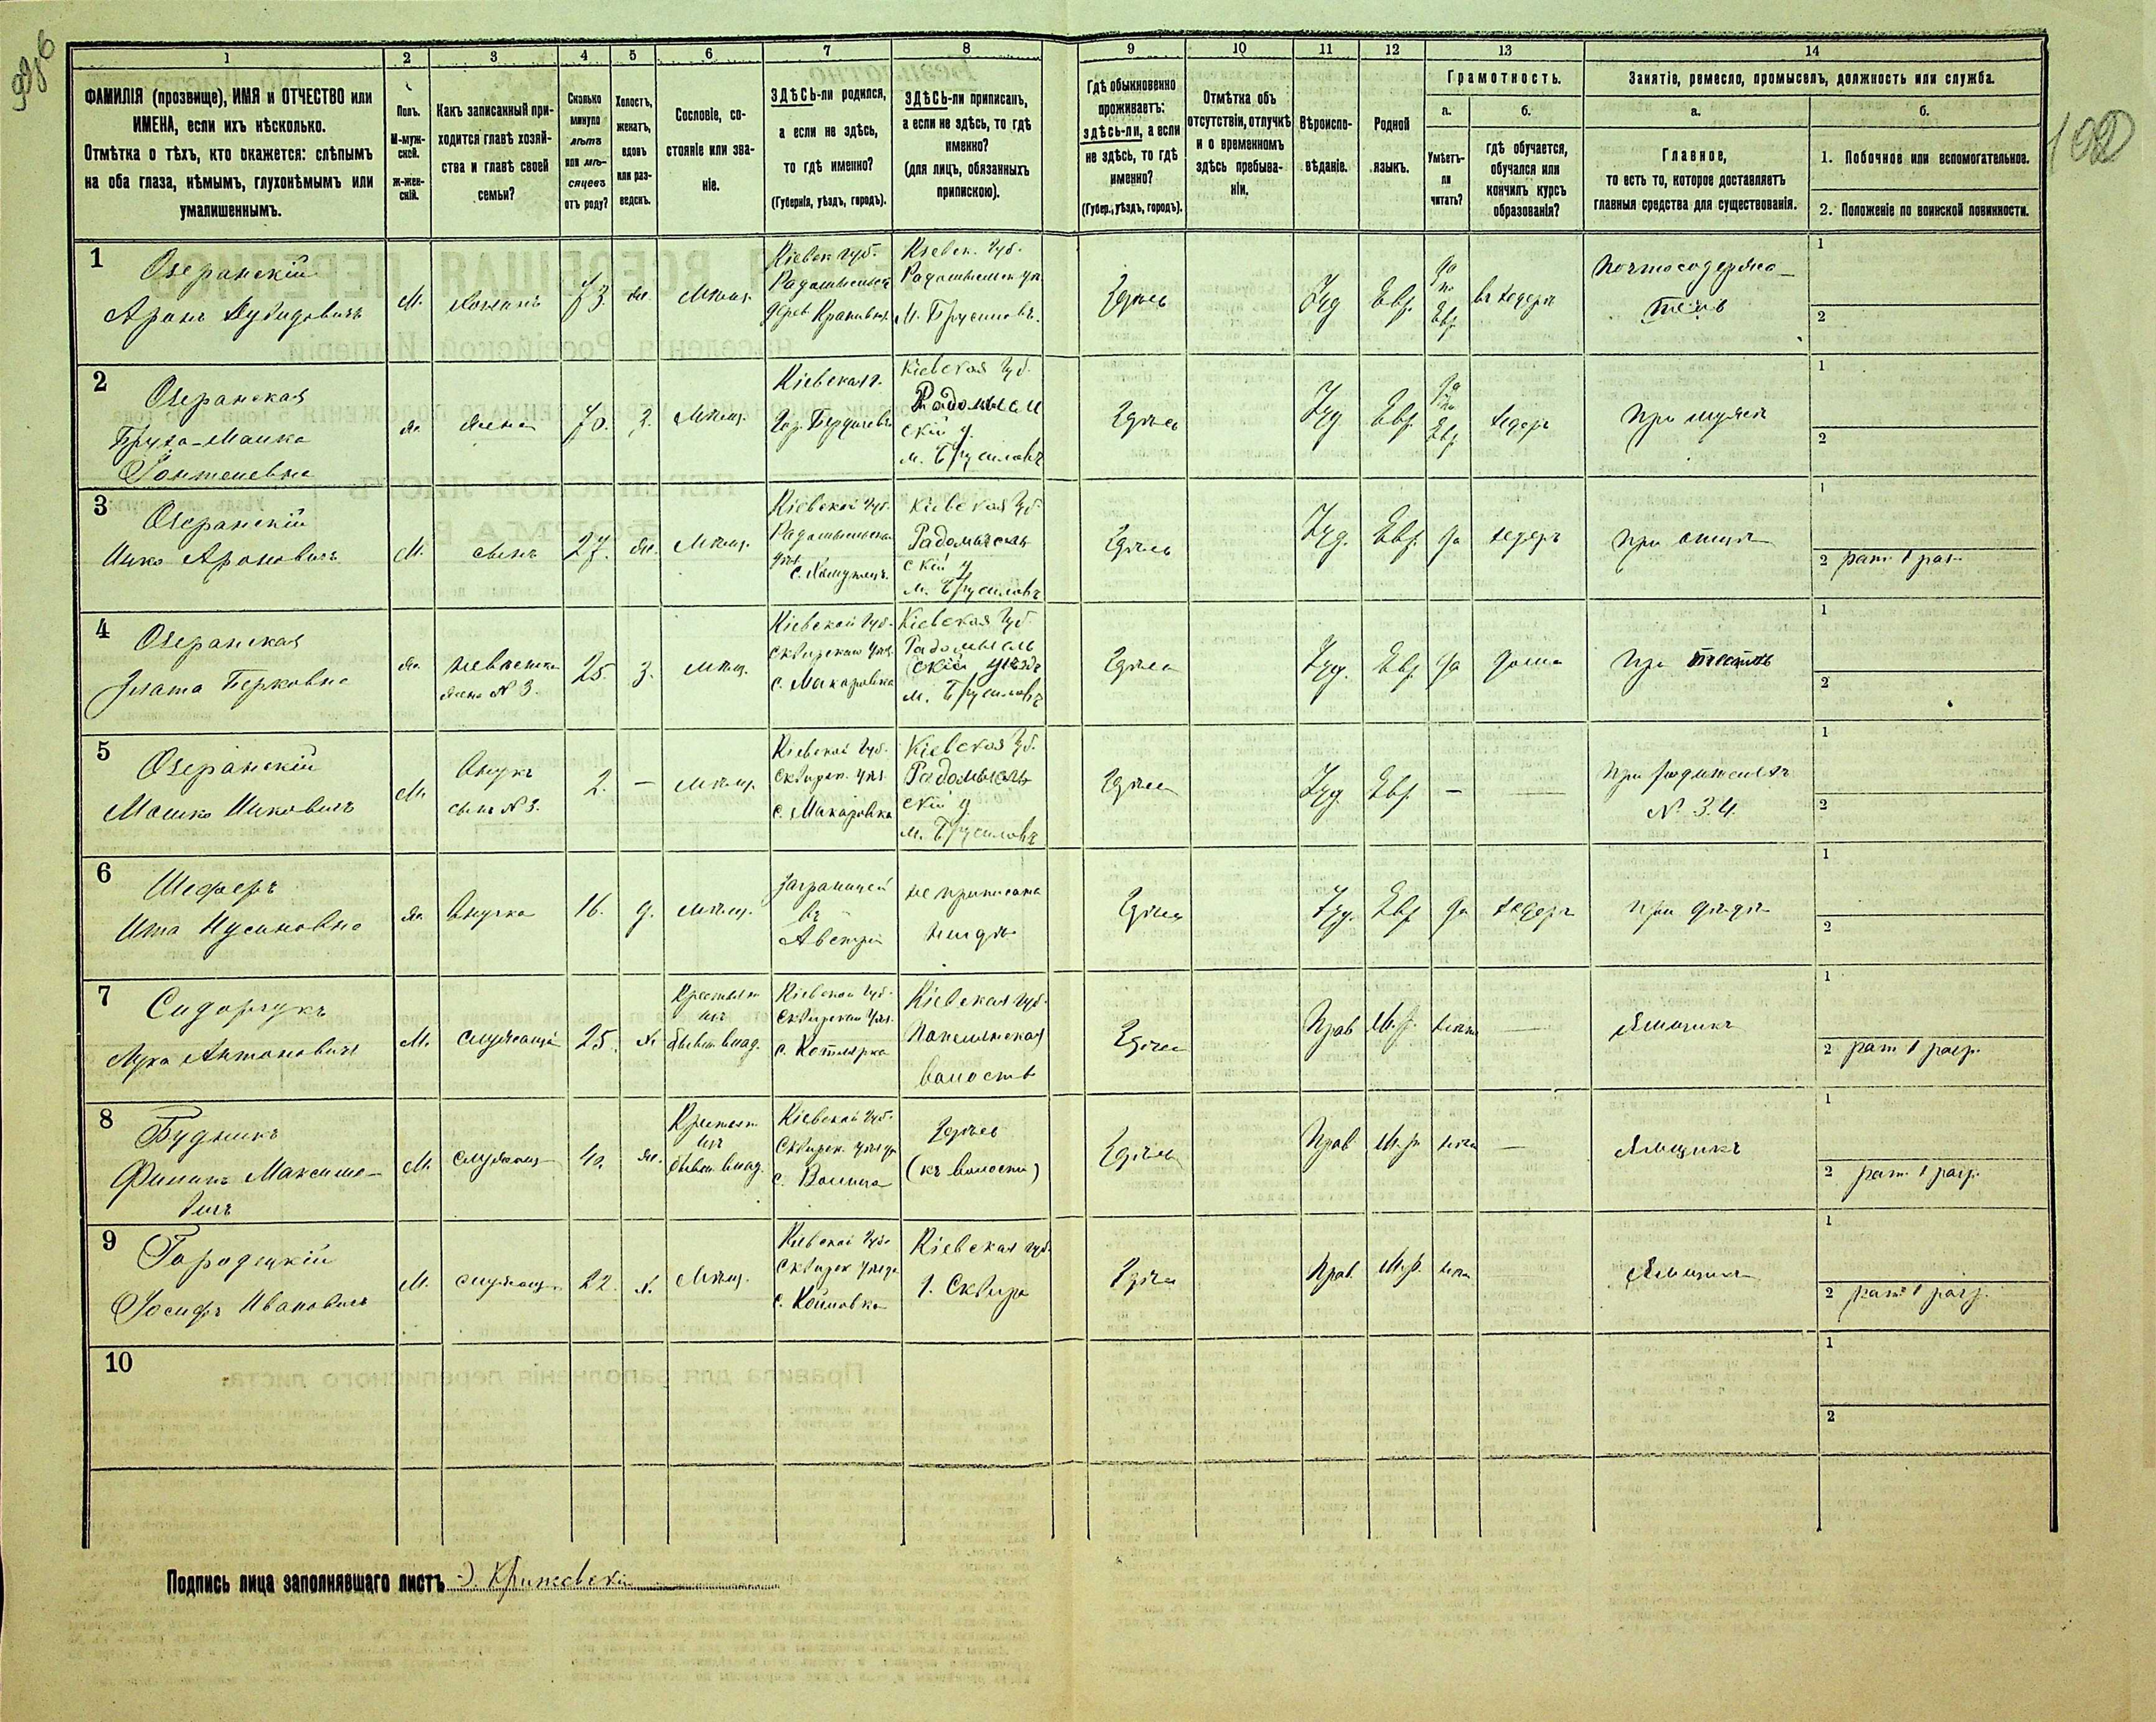 1
2
3
4
5
6
7
8
9
10
11
12
13
14
ФАМИЛІЯ (прозвище), ИМЯ и ОТЧЕСТВО или
ИМЕНА, если ихъ нѣсколько.
Отмѣтка о тѣхъ, кто окажется: слѣпымъ
на оба глаза, нѣмымъ, глухонѣмымъ или
умалишеннымъ.
Полъ.
М-муж-
ской.
ж-жен-
скій.
Какъ записанный при-
ходится главѣ хозяй-
ства и главѣ своей
семьи?
Сколько
минуло
лѣтъ
или мѣ-
сяцевъ
отъ роду?
Холостъ,
женатъ,
вдовъ
или раз-
веденъ.
Сословіе, со-
стояніе или зва-
ніе.
ЗДѢСЬ-ли родился,
а если не здѣсь,
то гдѣ именно?
(Губернія, уѣздъ, городъ).
ЗДѢСЬ-ли приписанъ,
а если не здѣсь, то гдѣ
именно?
(для лицъ, обязанныхъ
припискою).
Гдѣ обыкновенно
проживаетъ:
здѣсь-ли, а если
не здѣсь, то гдѣ
именно?
(Губер., уѣздъ, городъ).
Отмѣтка объ
отсутствіи, отлучкѣ
и о временномъ
здѣсь пребыва-
ніи.
Вѣроиспо-
вѣданіе.
Родной
языкъ.
Грамотность.
а.
Умѣетъ-
ли
читать?
б.
гдѣ обучается,
обучался или
кончилъ курсъ
образованія?
Занятіе, ремесло, промыселъ, должность или служба.
а.
Главное,
то есть то, которое доставляетъ
главныя средства для существованія.
б.
1. Побочное или вспомогательное.
2. Положеніе по воинской повинности.
1
Озеранскій
Аронъ Дувидовичъ
М.
Хозяинъ
73.
жн.
Мѣщ.
Кіевск. губ.
Радомысльск
дерев
Кіевск. губ.
Радомысльск уѣз.
М. Брусиловъ.
Здѣсь
Іуд
Евр.
да
по
Евр.
въ хедерѣ
Почтосодержа-
тель
1
2
2
Озеранская
Бруха-Малка
М
ж.
жена
70.
з.
Мѣщ.
Кіевская г.
Гор. Бердичевъ
Кіевская Губ.
Радомысль
скій у.
м. Брусиловъ
Здѣсь
Іуд
Евр.
да
по
Евр.
хедеръ
При мужѣ
1
2
3
Озеранскій
Ицко Ароновичъ
М.
сынъ
27.
жн.
Мѣщ.
Кіевской Губ.
Радомысльскаго
уѣз.
Кіевская Губ.
Радомысль
скій у
м. Брусиловъ
Здѣсь
Іуд.
Евр.
да
хедеръ
При отцѣ
1
2 рат 1 раз.
4
Озеранская
Злата Берковна
жн.
невѣстка
жена № 3.
25.
з.
мѣщ.
Кіевской Губ.
Сквирскаго уѣз.
с. Макаровка
Кіевская Губ.
Радомысль
скій уѣзда
м. Брусиловъ
Здѣсь
Іуд.
Евр.
да
дома
При тестѣ
1
2
5
Озеранскій
Мошко Ицковичъ
М.
Внукъ
сынъ № 3.
2.
—
мѣщ.
Кіевской Губ.
Сквирск. уѣз.
с. Макаровка
Кіевская Губ.
Радомысль
скій у.
м. Брусиловъ
Здѣсь
Іуд.
Евр.
—
При родителяхъ
№ 3.4.
1
2
6
Шеферъ
Ита Нусиновна
жн.
Внучка
16.
д.
мѣщ.
заграницей
въ
Австріи
не приписана
нигдѣ
Здѣсь
Іуд.
Евр
да
хедеръ
При дѣдѣ
1
2
7
Сидорчукъ
Лука Антоновичъ
М.
служащій
25.
х.
Крестьян
инъ
бывш. влад.
Кіевской Губ.
Сквирскаго уѣз.
с. Котлярка
Кіевская губ.
Паволочская
волость
Здѣсь
Прав
М.р.
—
Ямщикъ
1
2 рат 1 разр.
8
Будникъ
Филипъ Максимо-
вичъ
М.
служащ
40.
жн.
Крестьян
инъ
бывш. влад.
Кіевской Губ.
Сквирск. уѣзда
с. Волица
Здѣсь
(къ волости)
Здѣсь
Прав
М.р
—
Ямщикъ
1
2 рат 1 разр.
9
Городецкій
Іосифъ Ивановичъ
М.
служащ.
22.
х.
Мѣщ.
Кіевской Губ.
Сквирск уѣзда
с. Койловка
Кіевская губ.
г. Сквира
Здѣсь
Прав.
М.р.
Ямщикъ
1
2 рат 1 разр.
10
1
2
Подпись лица заполнявшаго листъ